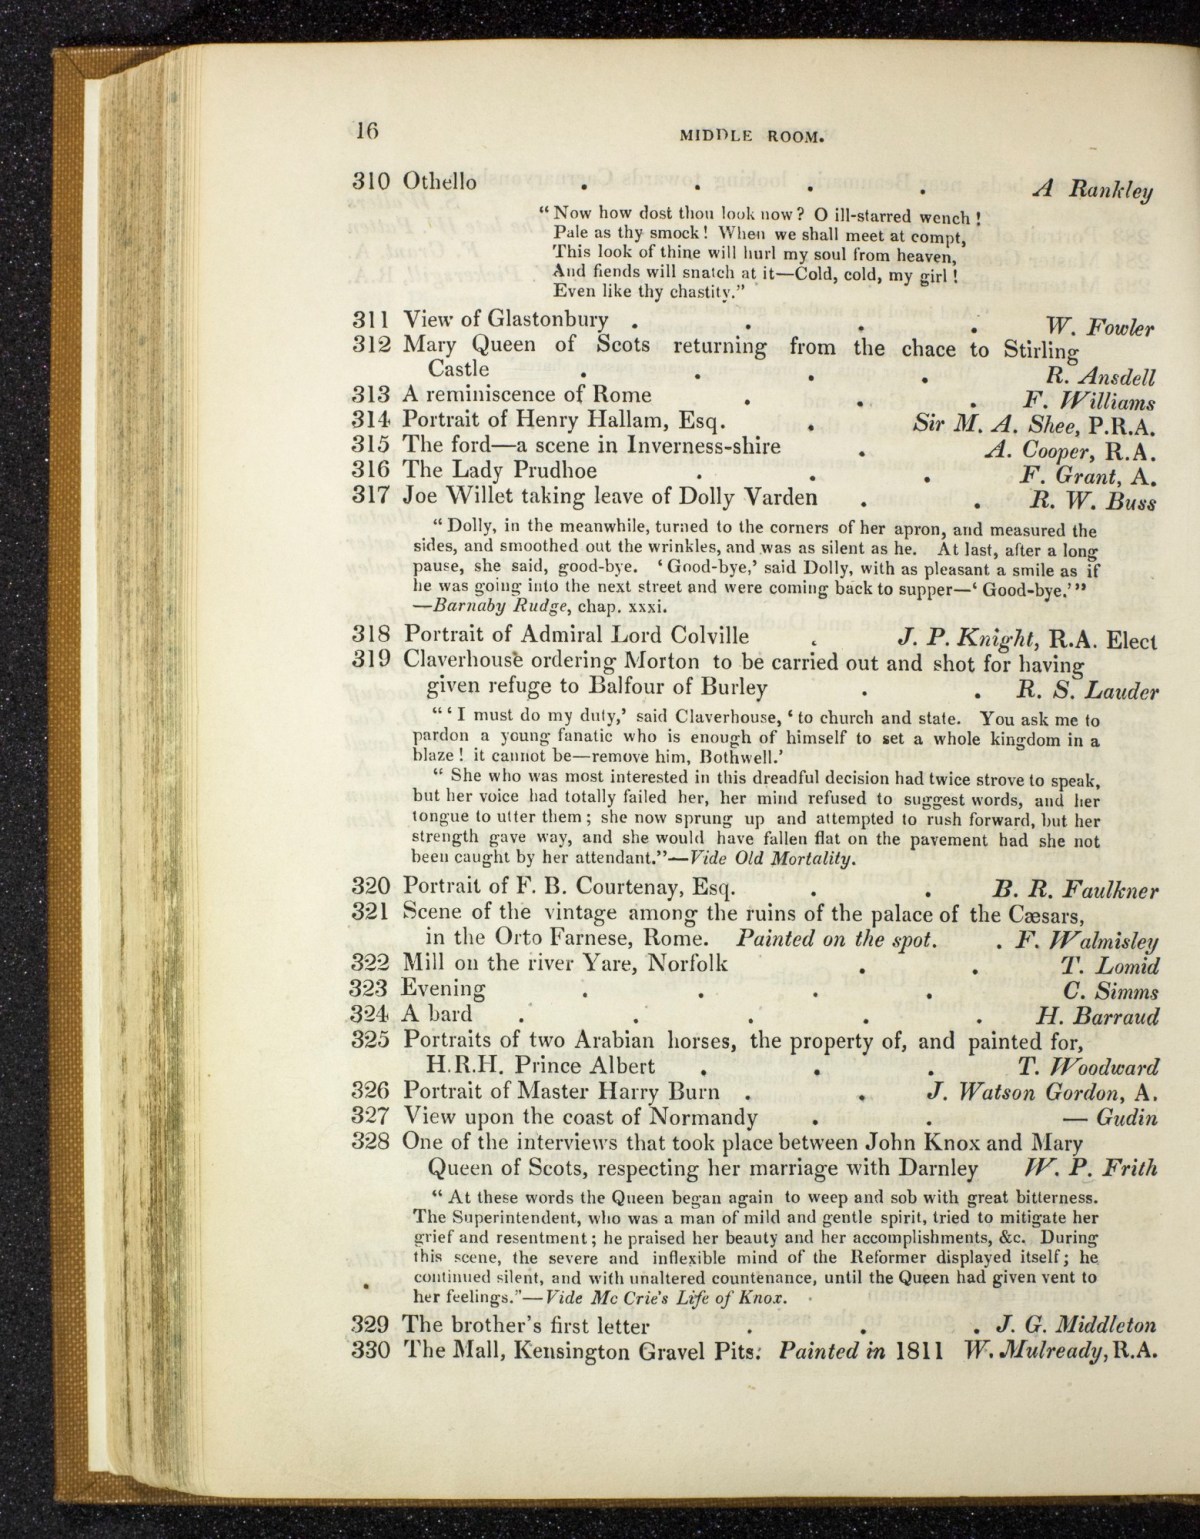 16
MIDDLE ROOM.
310 Othello . . . . A Rankley
“Now how dost thou look now? O ill-starred wench!
Pale as thy smock! When we shall meet at compt,
This look of thine will hurl my soul from heaven,
And fiends will snatch at it—Cold, cold, my girl!
Even like thy chastity.”
311 View of Glastonbury . . . . W. Fowler
312 Mary Queen of Scots returning from the chace to Stirling
Castle . . . . R. Ansdell
313 A reminiscence of Rome . . . F. Williams
314 Portrait of Henry Hallam, Esq. . Sir M. A. Shee, P.R.A.
315 The ford—a scene in Inverness-shire . A. Cooper, R.A.
316 The Lady Prudhoe . . . F. Grant, A.
317 Joe Willet taking leave of Dolly Varden . . R. W. Buss
“Dolly, in the meanwhile, turned to the corners of her apron, and measured the
sides, and smoothed out the wrinkles, and was as silent as he. At last, after a long
pause, she said, good-bye. ‘Good-bye,’ said Dolly, with as pleasant a smile as if
he was going into the next street and were coming back to supper—‘Good-bye.’”
—Barnaby Rudge, chap. xxxi.
318 Portrait of Admiral Lord Colville . J. P. Knight, R.A. Elect
319 Claverhouse ordering Morton to be carried out and shot for having
given refuge to Balfour of Burley . . R. S. Lauder
“‘I must do my duty,’ said Claverhouse, ‘to church and state. You ask me to
pardon a young fanatic who is enough of himself to set a whole kingdom in a
blaze! it cannot be—remove him, Bothwell.’
“She who was most interested in this dreadful decision had twice strove to speak,
but her voice had totally failed her, her mind refused to suggest words, and her
tongue to utter them; she now sprung up and attempted to rush forward, but her
strength gave way, and she would have fallen flat on the pavement had she not
been caught by her attendant.”—Vide Old Mortality.
320 Portrait of F. B. Courtenay, Esq. . . B. R. Faulkner
321 Scene of the vintage among the ruins of the palace of the Cæsars,
in the Orto Farnese, Rome. Painted on the spot. . F. Walmisley
322 Mill on the river Yare, Norfolk . . T. Lomid
323 Evening . . . . C. Simms
324 A bard . . . . . H. Barraud
325 Portraits of two Arabian horses, the property of, and painted for,
H.R.H. Prince Albert . . . T. Woodward
326 Portrait of Master Harry Burn . . J. Watson Gordon, A.
327 View upon the coast of Normandy . . — Gudin
328 One of the interviews that took place between John Knox and Mary
Queen of Scots, respecting her marriage with Darnley W. P. Frith
“At these words the Queen began again to weep and sob with great bitterness.
The Superintendent, who was a man of mild and gentle spirit, tried to mitigate her
grief and resentment; he praised her beauty and her accomplishments, &c. During
this scene, the severe and inflexible mind of the Reformer displayed itself; he
continued silent, and with unaltered countenance, until the Queen had given vent to
her feelings.”—Vide Mc Crie's Life of Knox.
329 The brother's first letter . . . J. G. Middleton
330 The Mall, Kensington Gravel Pits. Painted in 1811 W. Mulready, R.A.